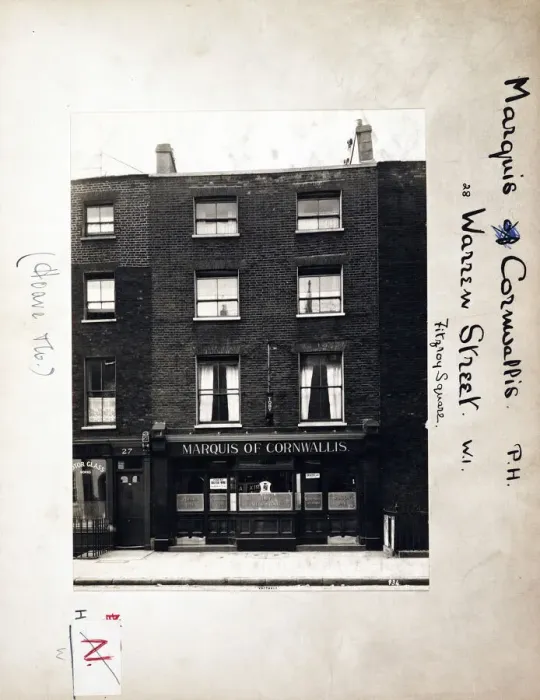 Marquis of Cornwallis. P.H.
28 Warren Street. W.1.
Fitzroy Square.
MARQUIS OF CORNWALLIS.
27
TOR GLASS
H
N.
W